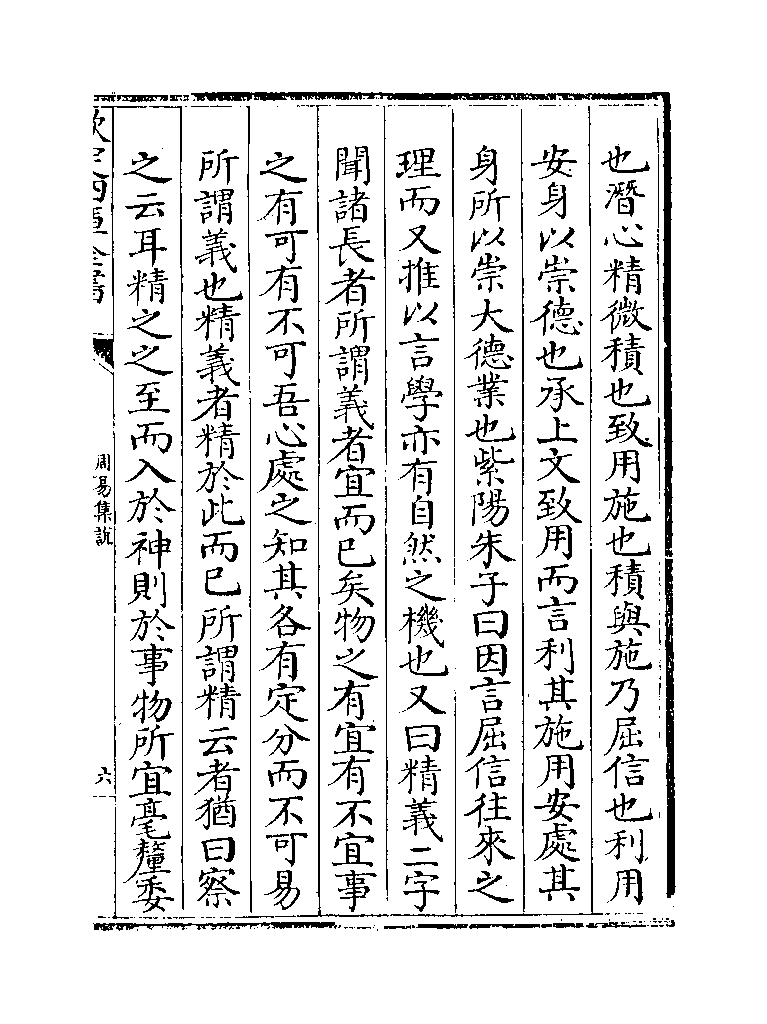 也潛心精微積也致用施也積與施乃屈信也利用
安身以崇德也承上文致用而言利其施用安處其
身所以崇大德業也紫陽朱子曰因言屈信往來之
理而又推以言學亦有自然之機也又曰精義二字
聞諸長者所謂義者宜而已矣物之有宜有不宜事
之有可有不可吾心處之知其各有定分而不可易
所謂義也精義者精於此而已所謂精云者猶曰察
之云耳精之之至而入於神則於事物所宜毫釐委
欽定四庫全書
周易集說
六